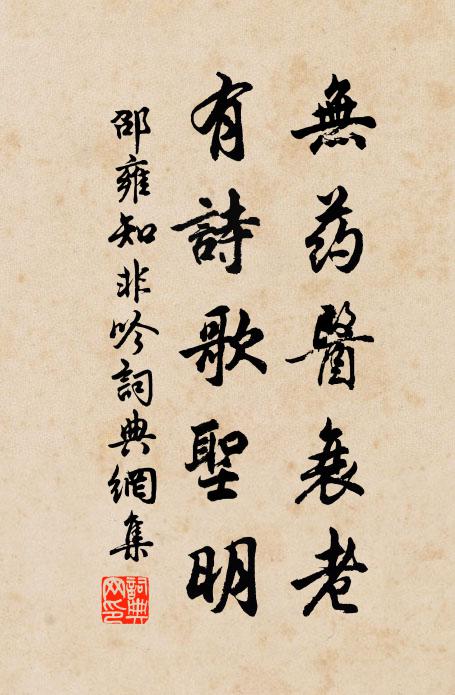 無药醫衰老
有詩歌聖明
邵雍知非吟詞典網集
詞典网印